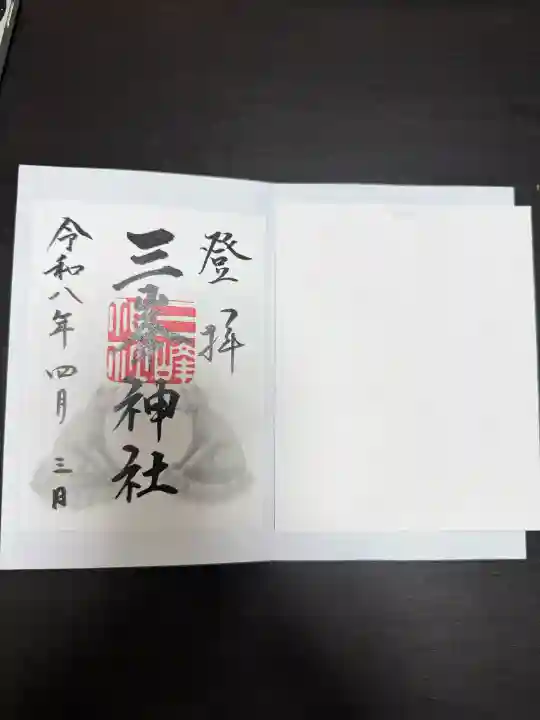 登拝
三峯神社
令和八年四月三日